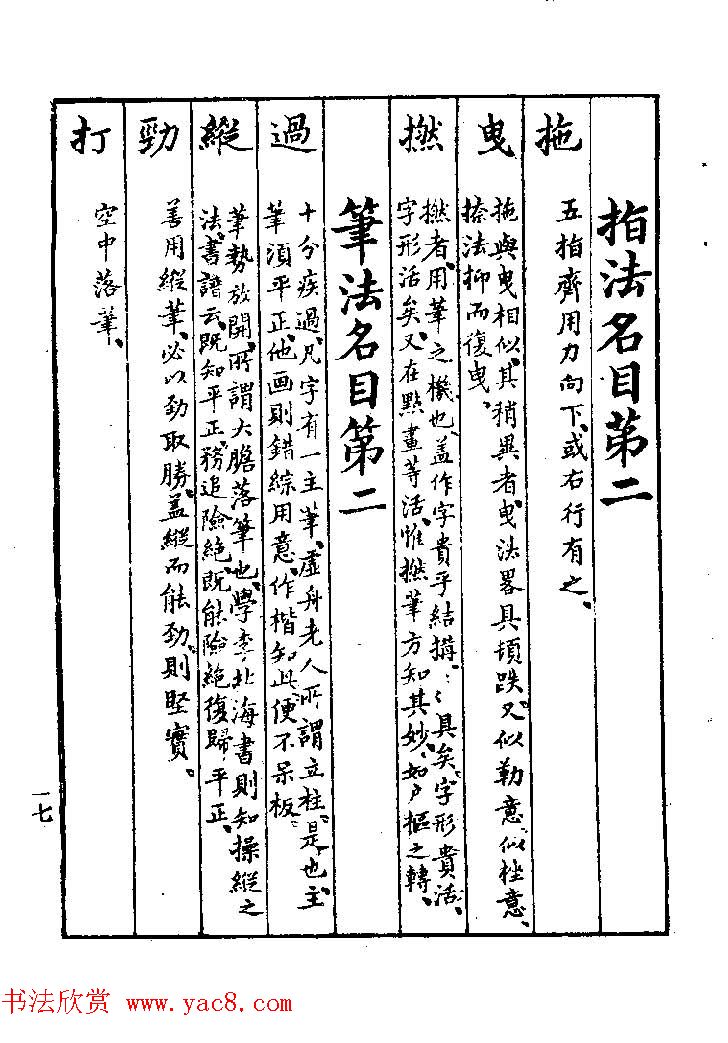 指法名目苐二
拖
五指齊用力向下、或右行有之、
曳
拖與曳相似、其稍異者、曳法畧具頓跌、又似勒意、似挫意、
捺法抑而復曳、
撚
撚者、用筆之機也、盖作字貴乎結搆、〻具矣、字形貴活、
字形活矣、又在點畫等活、惟撚筆方知其妙、如户樞之轉、
筆法名目第二
過
十分疾過、凡字有一主筆、虛舟老人所謂立柱、是也、主
筆湏平正、他画則錯綜用意、作楷知此、便不呆板、
縱
筆勢放開、所謂大膽落筆也、學李北海書則知操縱之
法、書譜云、旣知平正、務追險絶、旣能險絶、復歸平正、
勁
善用縱筆、必以勁取勝、盖縱而能勁、則堅實。
打
空中落筆、
一七
书法欣赏 www.yac8.com